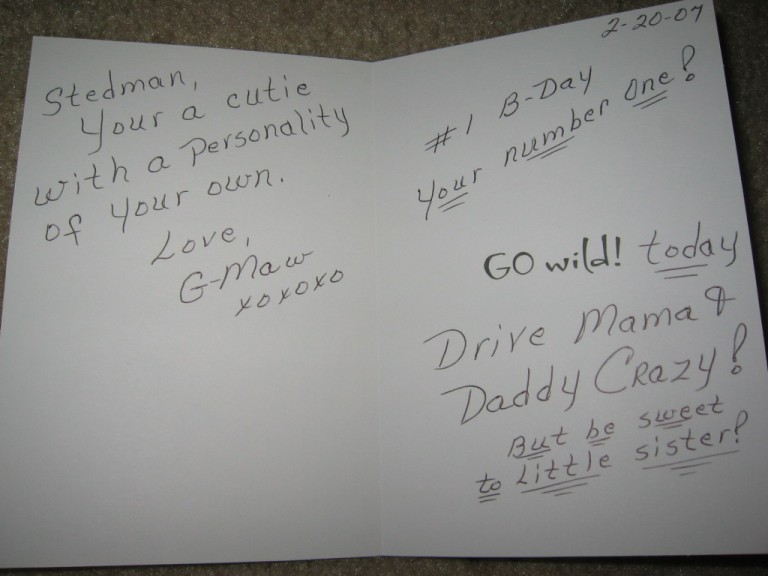 Stedman,
Your a cutie
with a Personality
of your own.
Love,
G-Maw
xoxoxo
2-20-07
#1 B-Day
your number one!
GO wild! today
Drive Mama &
Daddy Crazy!
But be sweet
to Little sister!